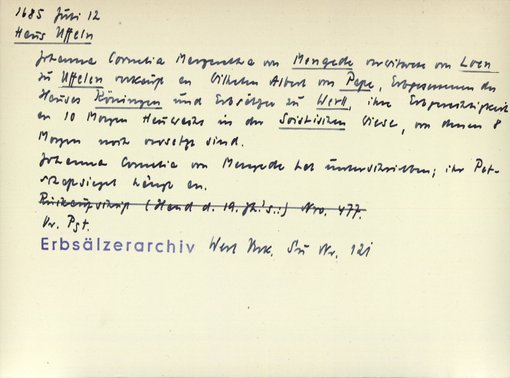 1685 Juli 12
Haus Uffeln
Johanna Cornelia Margaretha von Mengede verwitwete von Loen
zu Uffelen verkauft an Wilhelm Albert von Pape, Erbgesessenen des
Hauses Köningen und Erbsälzer zu Werll, ihre Erbgerechtigkeit
an 10 Morgen Heuwachs in der Soistischen Wiese, von denen 8
Morgen noch versetzt sind.
Johanna Cornelia von Mengede hat unterschrieben; ihr Pet-
schaftsiegel hängt an.
Rückaufschrift (Hand d. 19. Jh.s.:) Nro. 477.
Or. Pgt.
Erbsälzerarchiv Werl Urk. Nr. 121